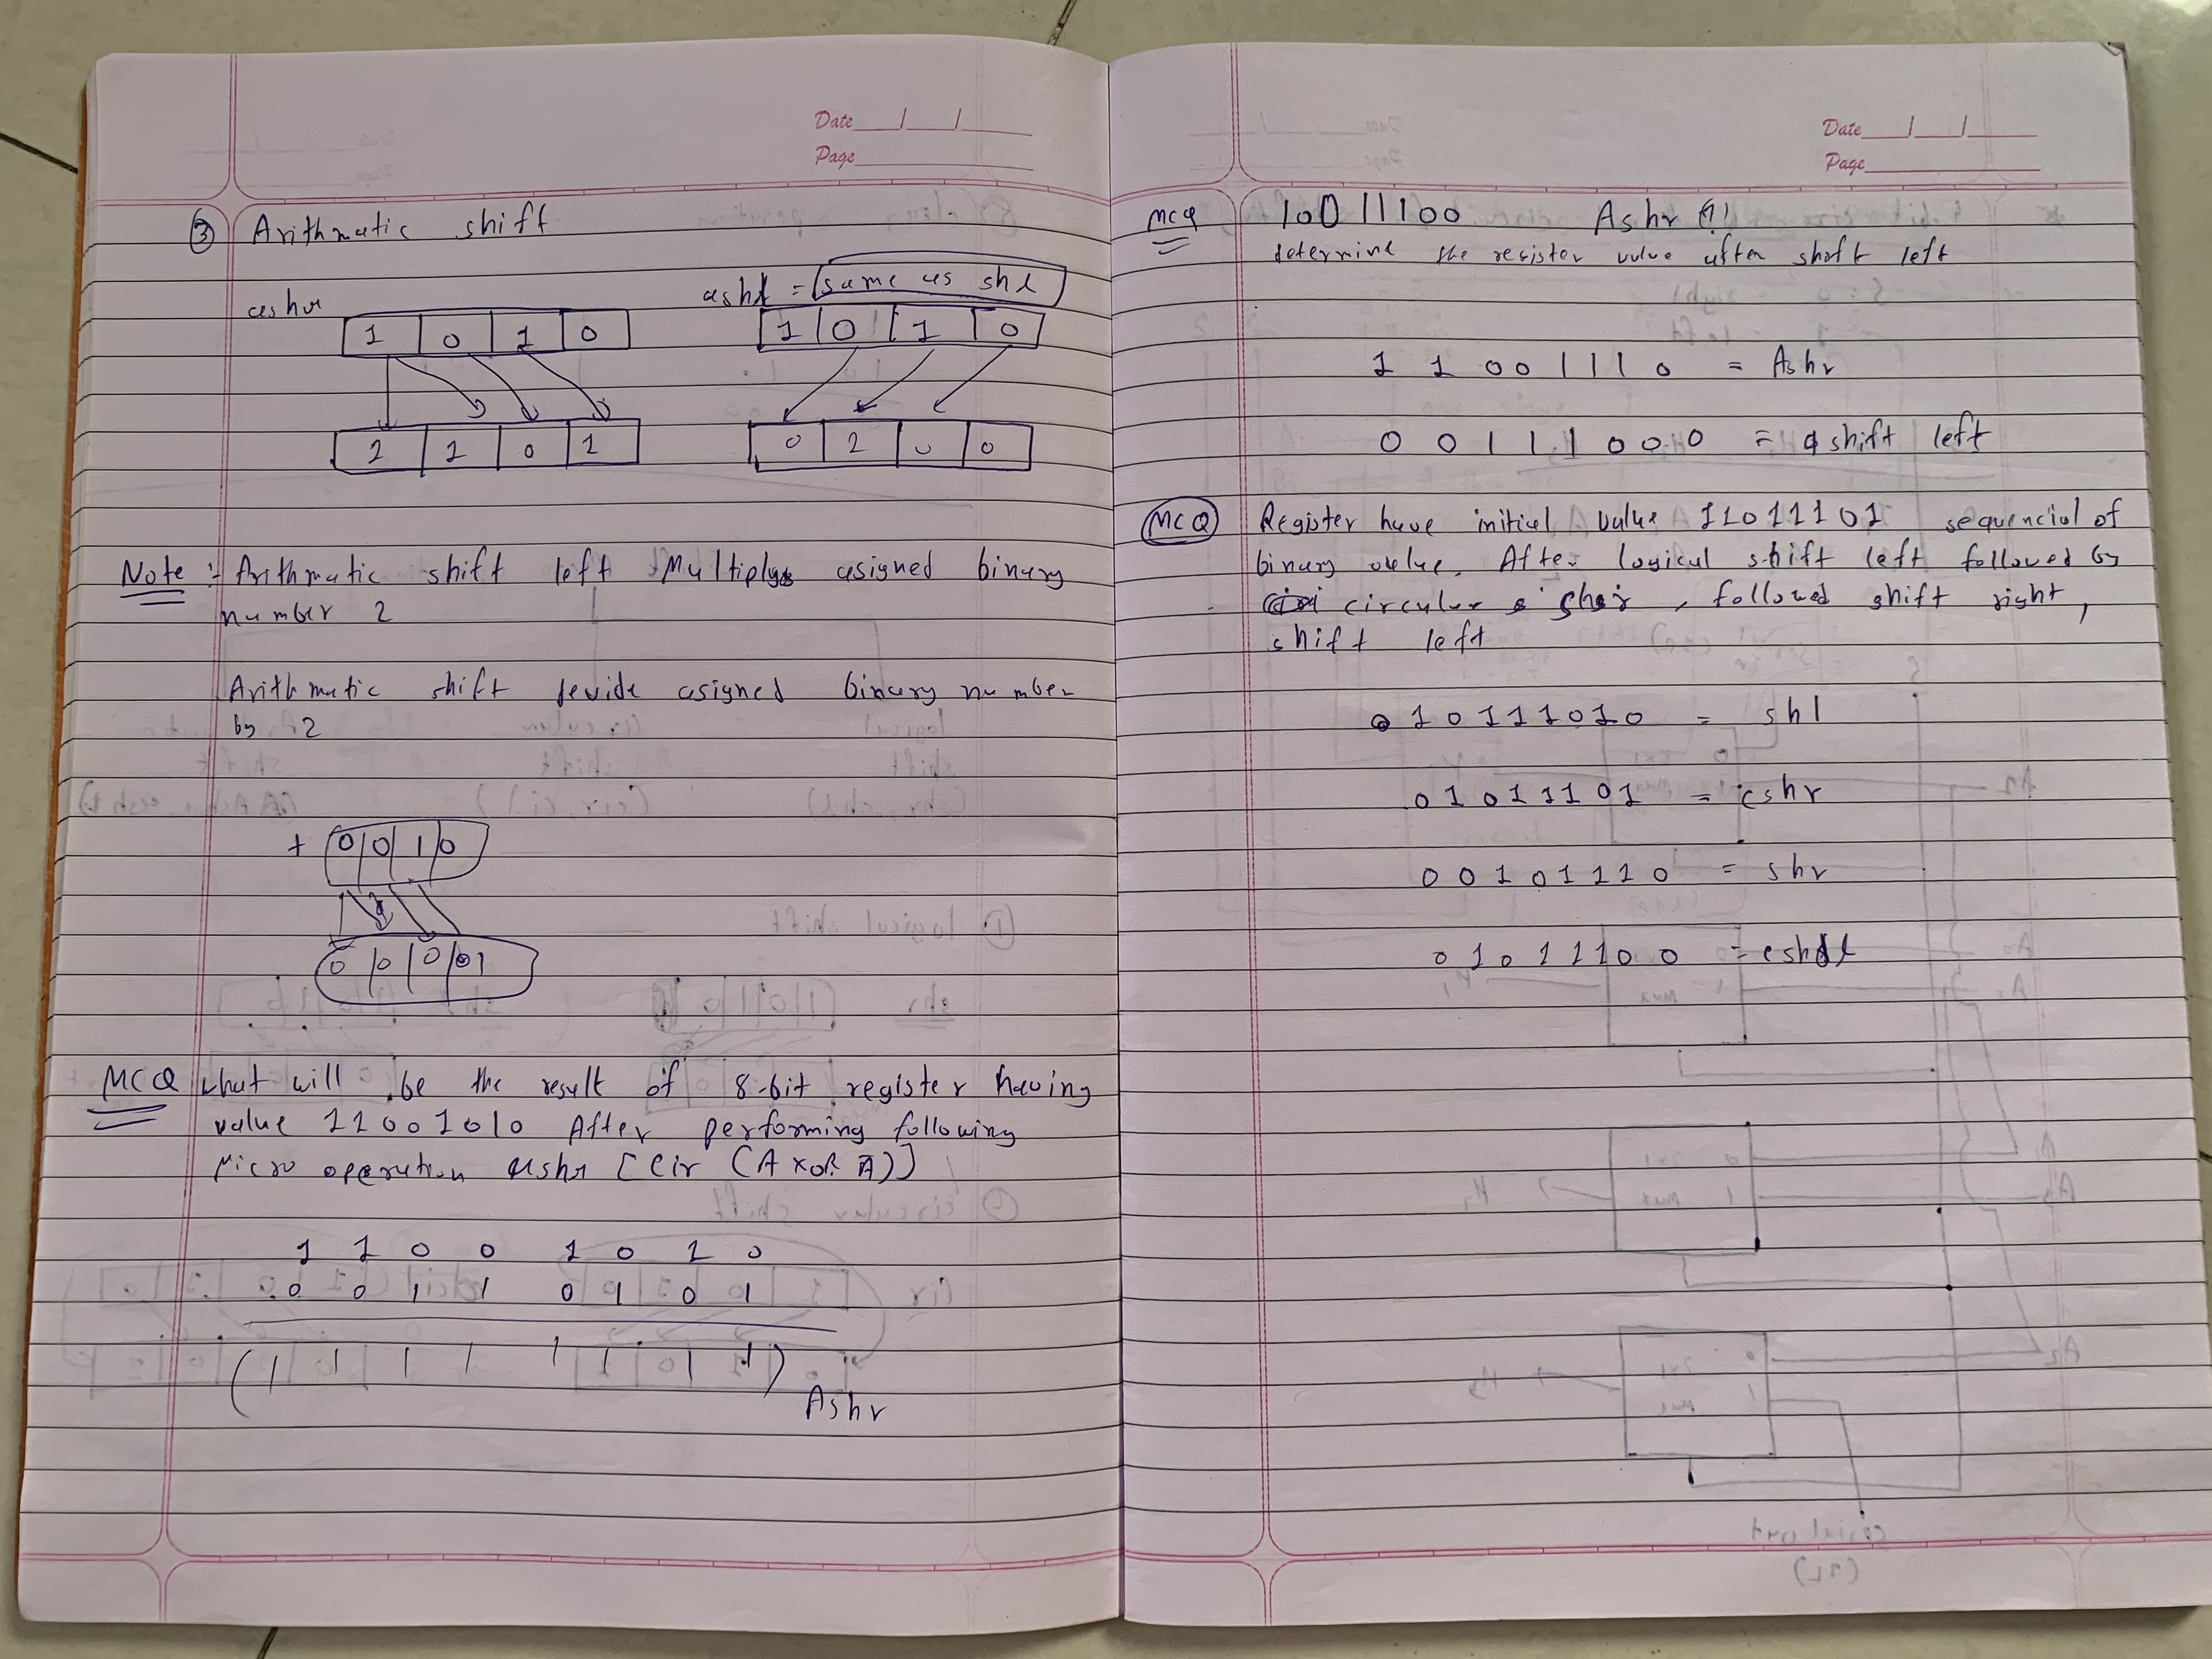 Date
Page
③ Arithmatic shift
ashr
ashl = same as shl
1 0 1 0
1 0 1 0
1 1 0 1
0 1 0 0
Note :- Arithmatic shift left Multiplys asigned binary
number 2
Arithmatic shift devide asigned binary number
by 2
+ 0 0 1 0
0 0 0 01
MCQ what will be the result of 8-bit register having
value 11001010 After performing following
Micro operation ashr [Cir (A XOR Ā)]
1 1 0 0 1 0 1 0
0 0 1 1 0 1 0 1
(1 1 1 1 1 1 1 1) Ashr
Date
Page
MCQ 10011100 Ashr (1)
determine the register value after shoft left
1 1 0 0 1 1 1 0 = Ashr
0 0 1 1 1 0 0 0 = ashift left
MCQ Register have initial value 11011101 sequencial of
binary value. After logical shift left followed by
circular shr, followed shift right,
shift left
0 10111010 = shl
01011101 = cshr
00101110 = shr
01011100 = cshl